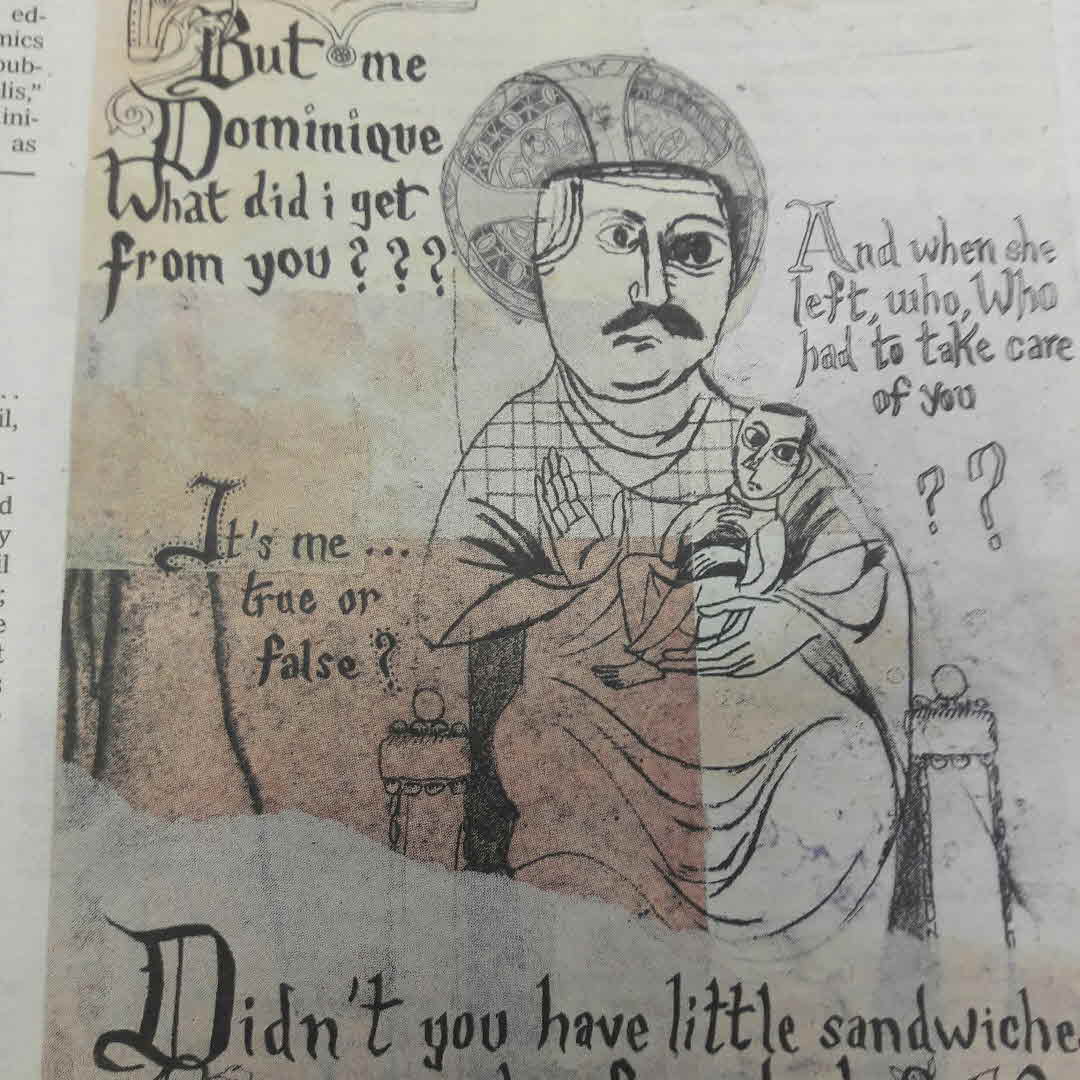 ed-
mics
pub-
lis,"
ini-
as
But me
Dominique
What did i get
from you ? ? ?
And when she
left, who, Who
had to take care
of you
? ?
It's me ...
true or
false ?
Didn't you have little sandwiche